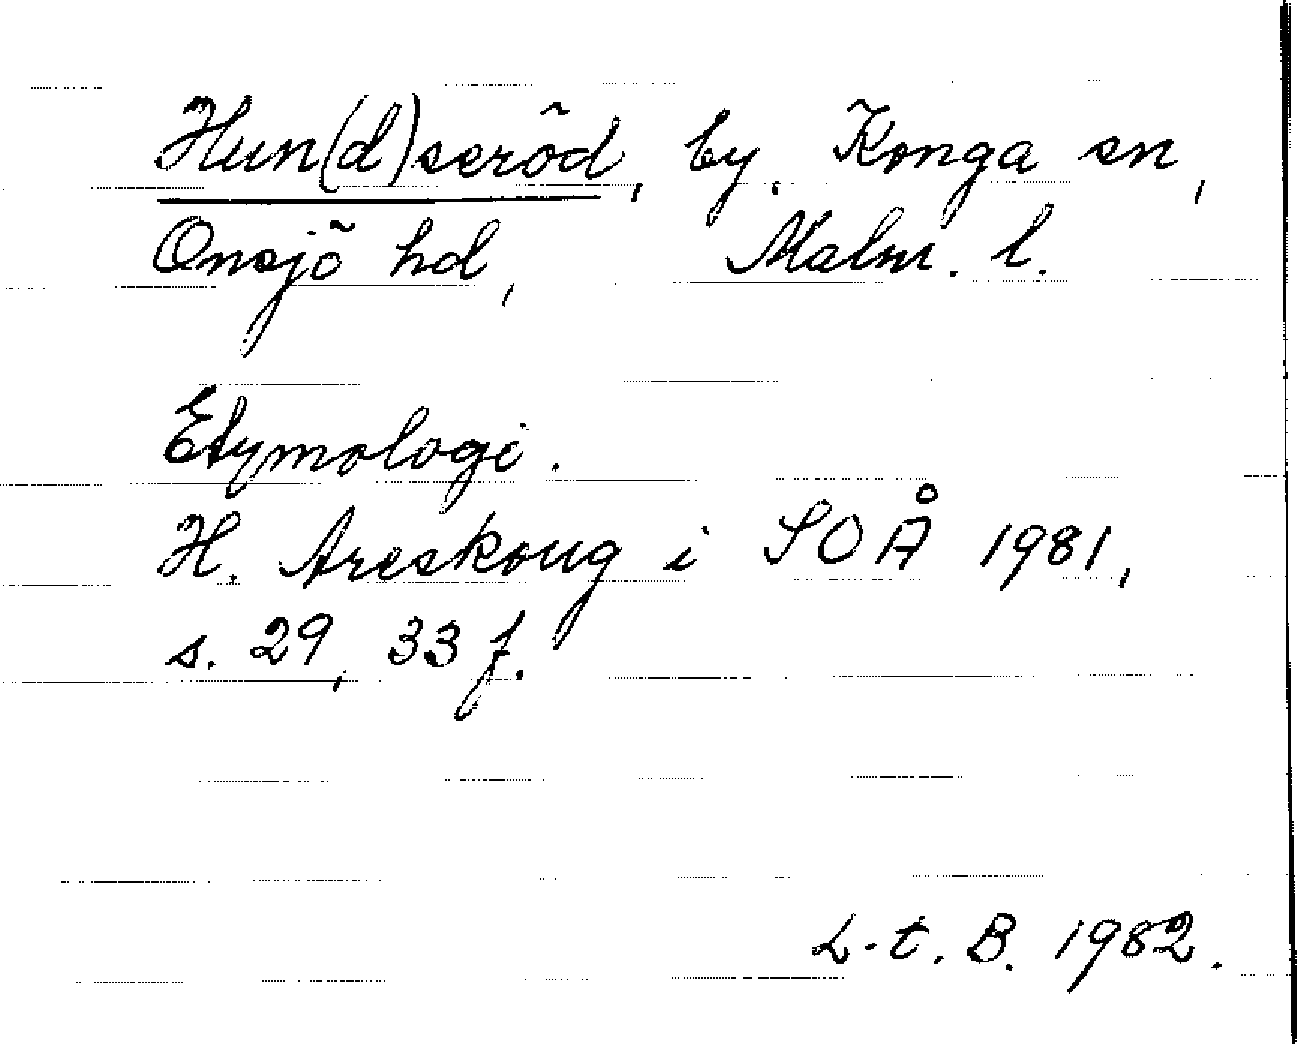 Hun(d)seröd, by. Konga sn,
Onsjö hd, Malm. l.
Etymologi.
H. Areskoug i SOÅ 1981,
s. 29, 33 f.
L-t. B. 1982.